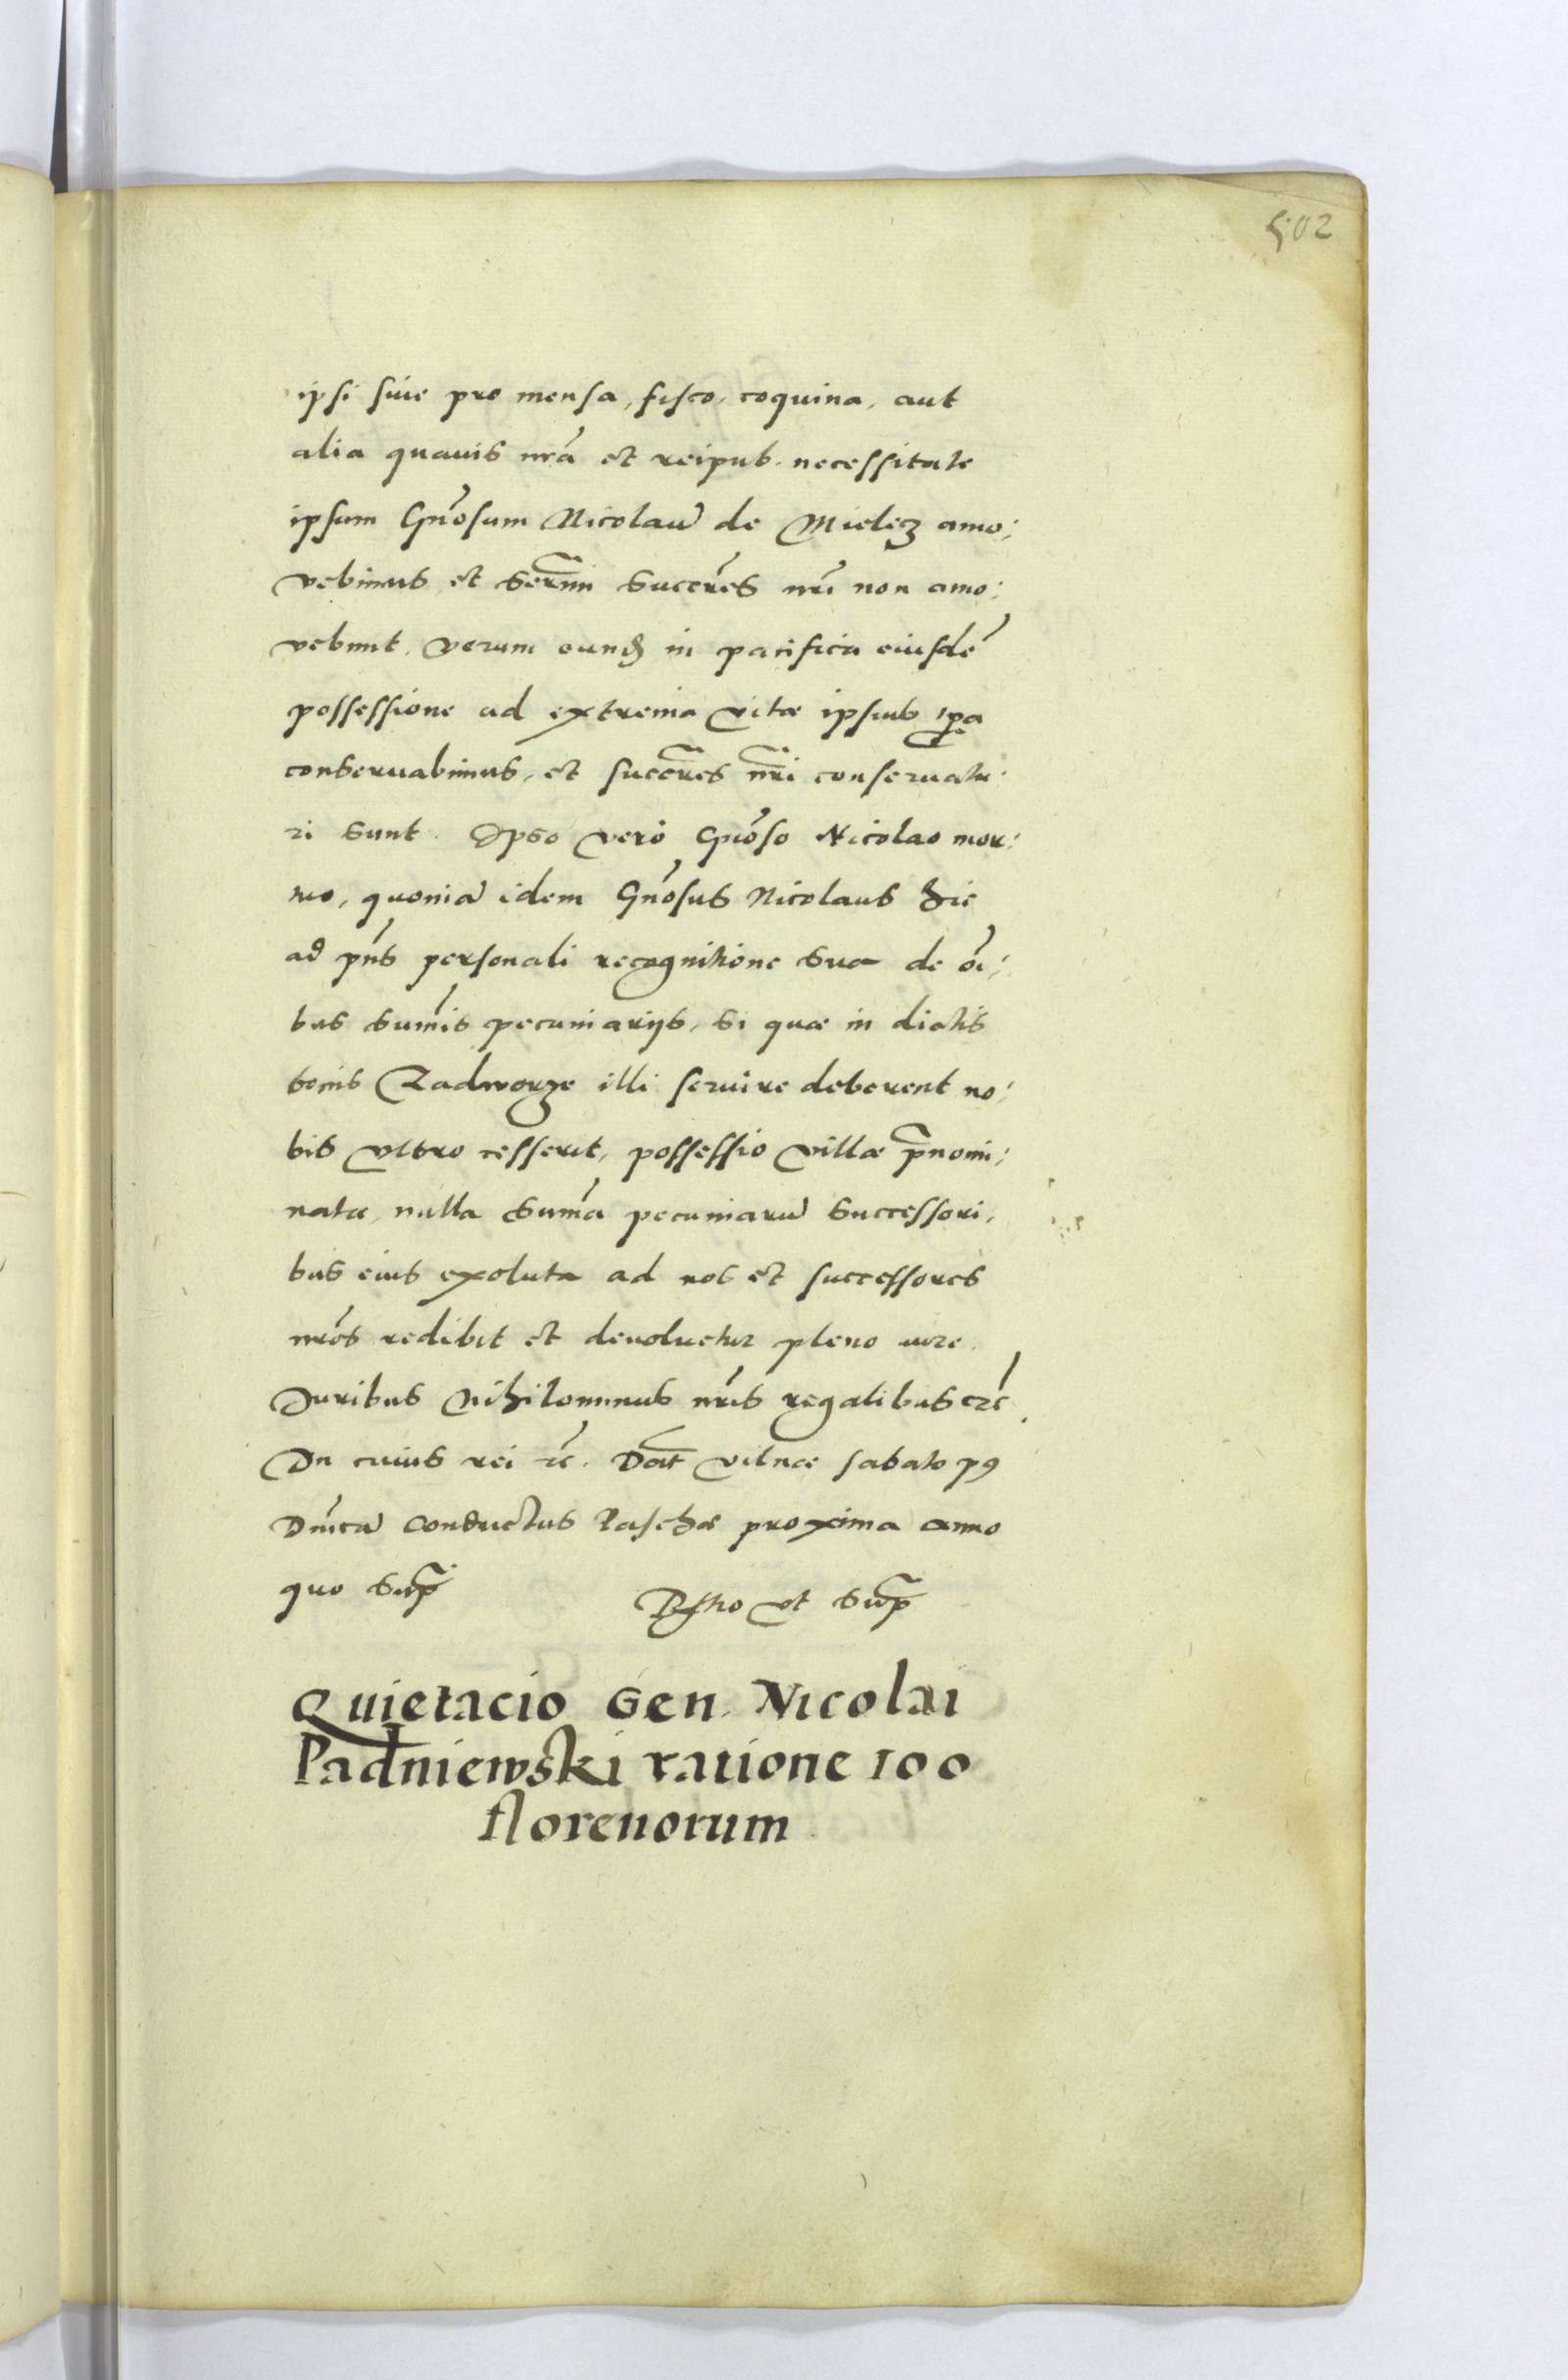 502
ipsi siue pro mensa, fisco, coquina, aut
alia quauis nrã et reipub. necessitate
ipsum Gñosum Nicolaũ de Mielecz amo:
vebimus et Serñmi Succrẽs nrĩ non amo:
vebunt. Verum eund in pacifica eiusdẽ
possessione ad extrema vitæ ipsius tpa
conseruabimus, et succrẽs nrĩ conseruatu:
ri sunt. Ipso vero Gñoso Nicolao mor:
tuo, quoniã idem Gñosus Nicolaus hic
ad pñs personali recognitione sua de oĩ:
bus sumĩs pecuniarijs, si quæ in dictis
bonis Zadworze illi seruire deberent no:
bis vltro cesserit, possessio villæ p̃nomi:
natæ, nulla sumã pecuniarũ successori,
bus eius exoluta ad nos et successores
nrõs redibit et deuoluetur pleno iure.
Juribus Nihilominus nrĩs regalibus etc̃.
In cuius rei etc̃. Dat̃ Vilnæ sabato p9
Dnĩcã Conductus Paschæ proxima anno
quo Sup̃
R͂tio vt Sup̃
Quietacio Gen. Nicolai
Padniewski ratione 100
florenorum